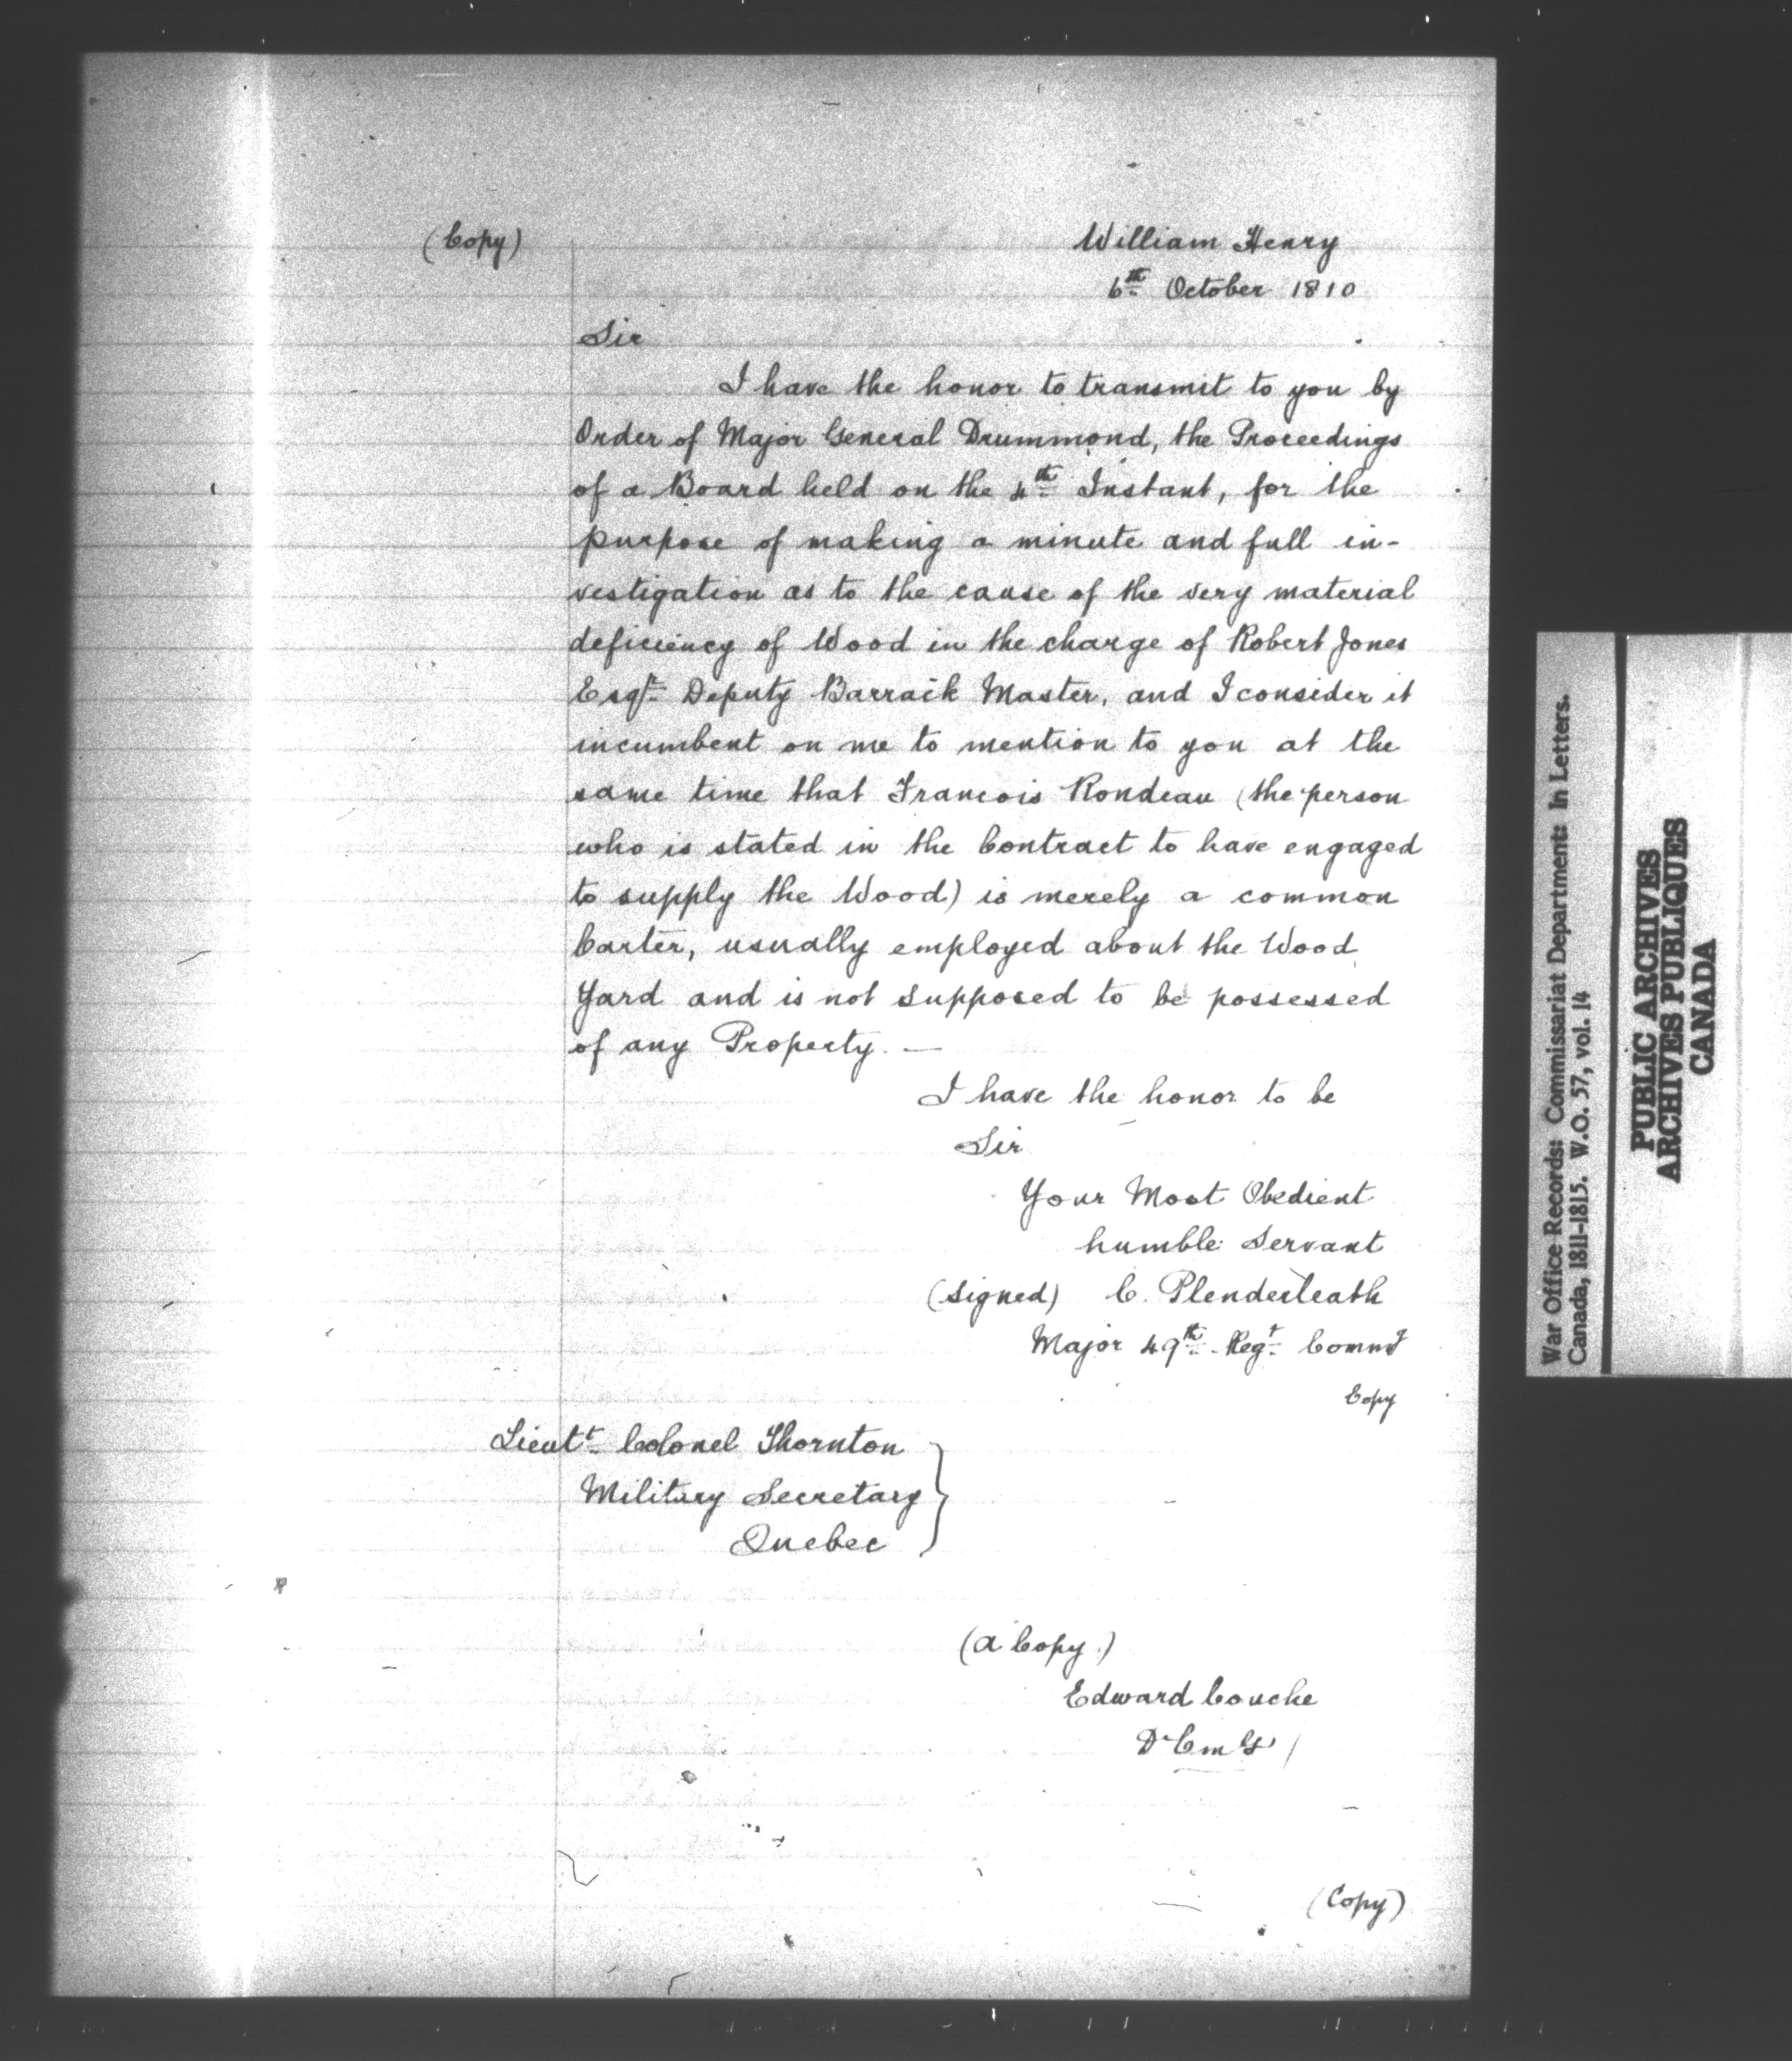 (Copy)
William Henry
6th October 1810
Sir
I have the honor to transmit to you by
Order of Major General Drummond, the Proceedings
of a Board held on the 4th Instant, for the
purpose of making a minute and full in-
vestigation as to the cause of the very material
deficiency of Wood in the charge of Robert Jones
Esqr Deputy Barrack Master, and I consider it
incumbent on me to mention to you at the
same time that Francois Rondeau (the person
who is stated in the Contract to have engaged
to supply the Wood) is merely a common
Carter, usually employed about the Wood
Yard and is not supposed to be possessed
of any Property. —
I have the honor to be
Sir
Your Most Obedient
humble Servant
(signed) C. Plenderleath
Major 49th Regt Commg
Copy
Lieutt Colonel Thornton
Military Secretary
Quebec
(A Copy.)
Edward Couche
D Cm G
(Copy)
War Office Records: Commissariat Department: In Letters.
Canada, 1811-1815. W.O. 57, vol. 14
PUBLIC ARCHIVES
ARCHIVES PUBLIQUES
CANADA